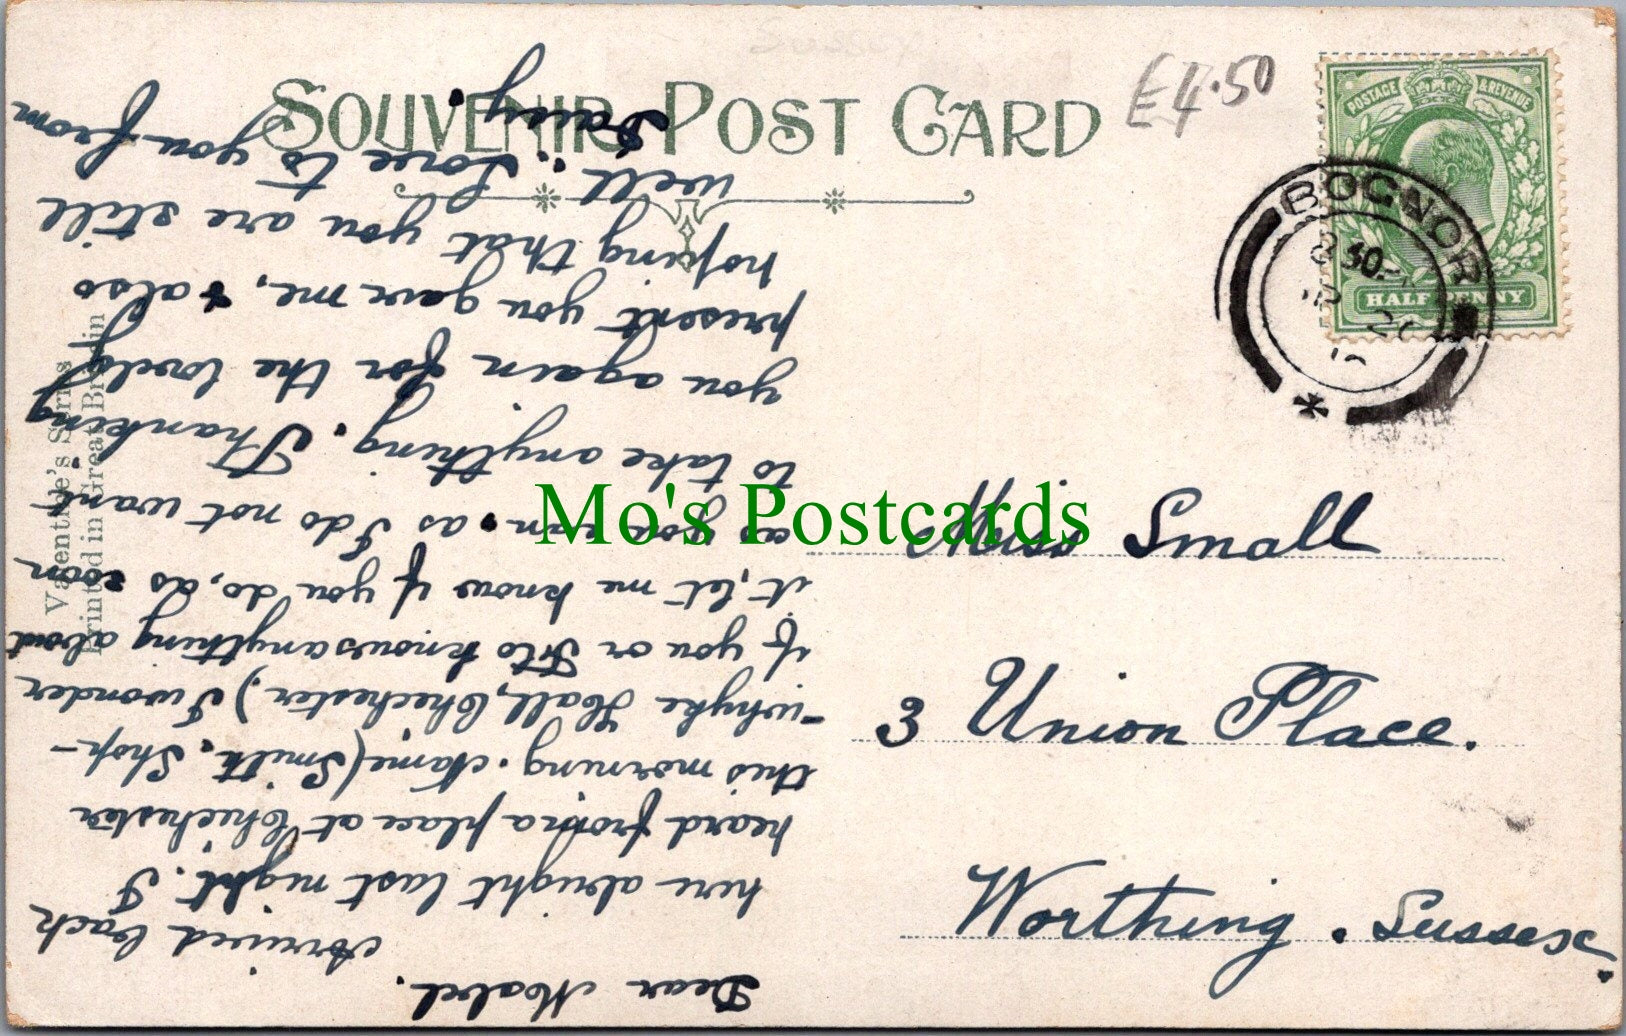 SOUVENIR POST CARD
£4.50
POSTAGE & REVENUE
HALF PENNY
BOGNOR
Miss Small
3 Union Place.
Worthing. Sussex.
Valentine's Series
Printed in Great Britain
Mo's Postcards
Dear Mabel.
Arrived back
here alright last night. I
heard from a place at Chichester
this morning. Name (Smith, Shop-
-whyke Hall, Chichester,) I wonder
if you or Flo knows anything about
it, let me know if you do, as soon
as you can. as I do not want
to take anything. Thanking
you again for the lovely
present you gave me, & also
hoping that you are still
well. Love to you from
Daisy.